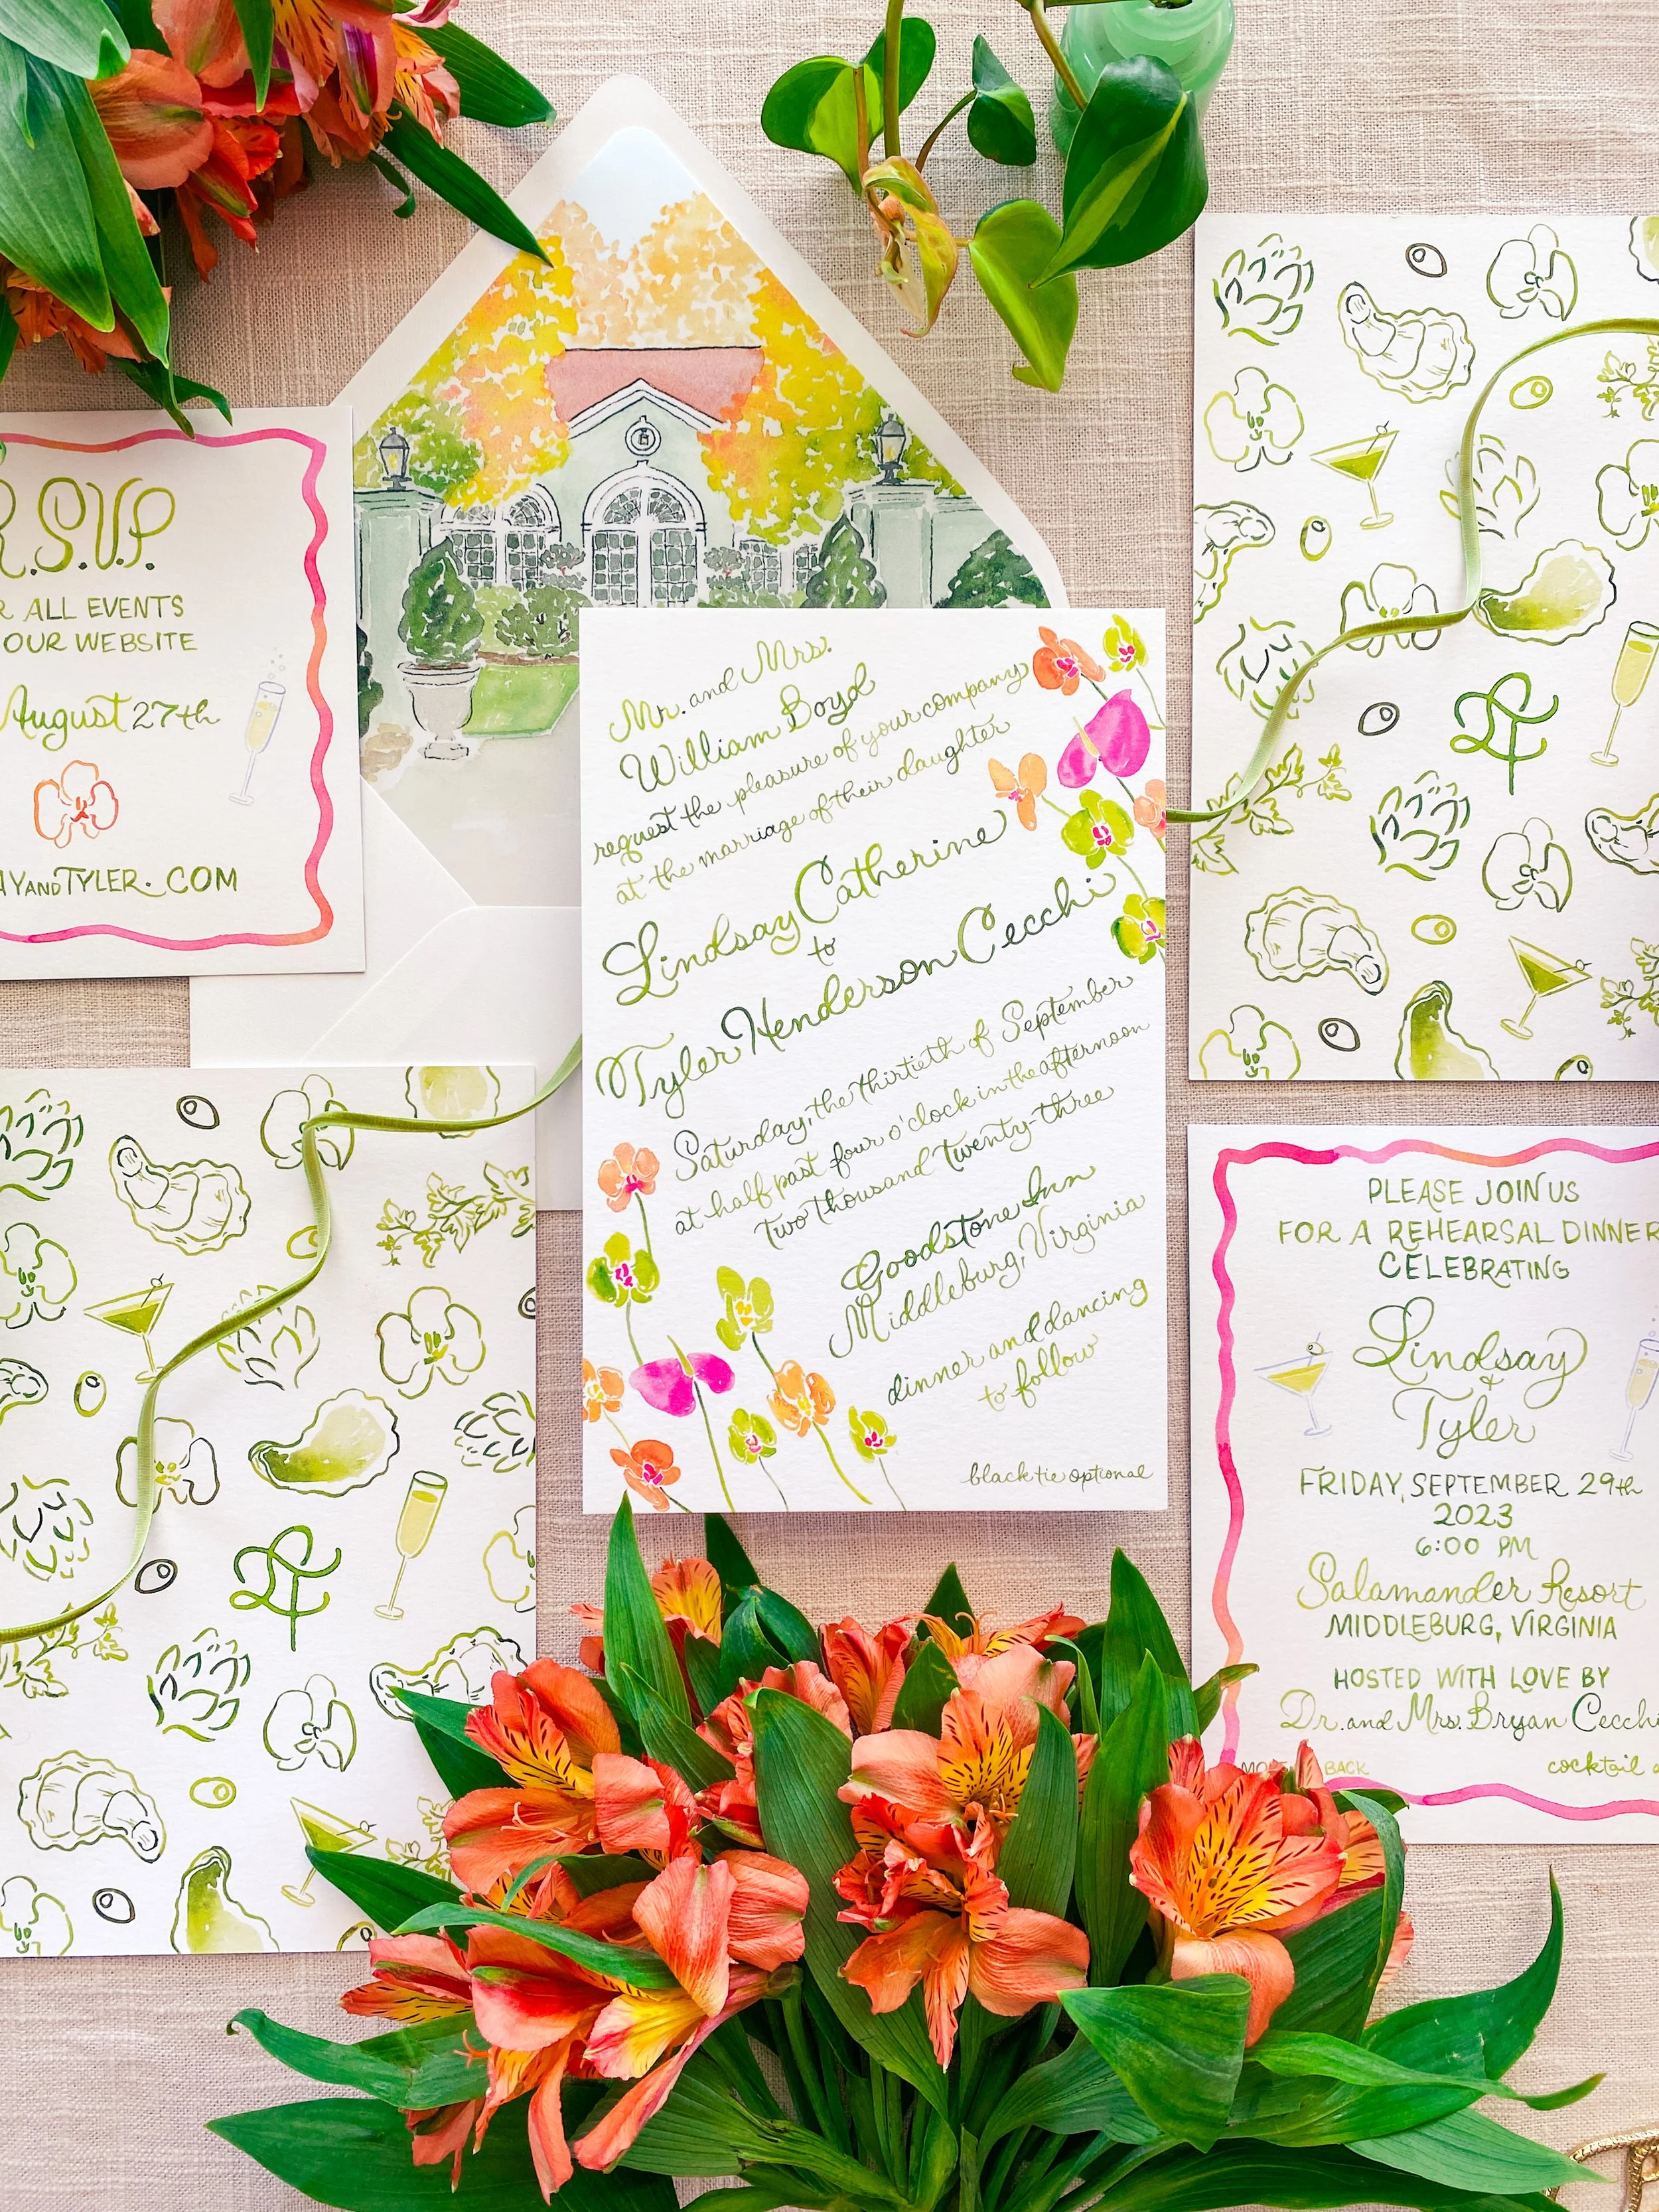 R.S.V.P.
ALL EVENTS
OUR WEBSITE
August 27th
ANDTYLER.COM
Mr. and Mrs.
William Boyd
request the pleasure of your company
at the marriage of their daughter
Lindsay Catherine
to
Tyler Henderson Cecchi
Saturday, the thirtieth of September
at half past four o'clock in the afternoon
two thousand twenty-three
Goodstone Inn
Middleburg, Virginia
dinner and dancing
to follow
black tie optional
PLEASE JOIN US
FOR A REHEARSAL DINNER
CELEBRATING
Lindsay
&
Tyler
FRIDAY, SEPTEMBER 29th
2023
6:00 PM
Salamander Resort
MIDDLEBURG, VIRGINIA
HOSTED WITH LOVE BY
Dr. and Mrs. Bryan Cecchi
BACK
cocktail